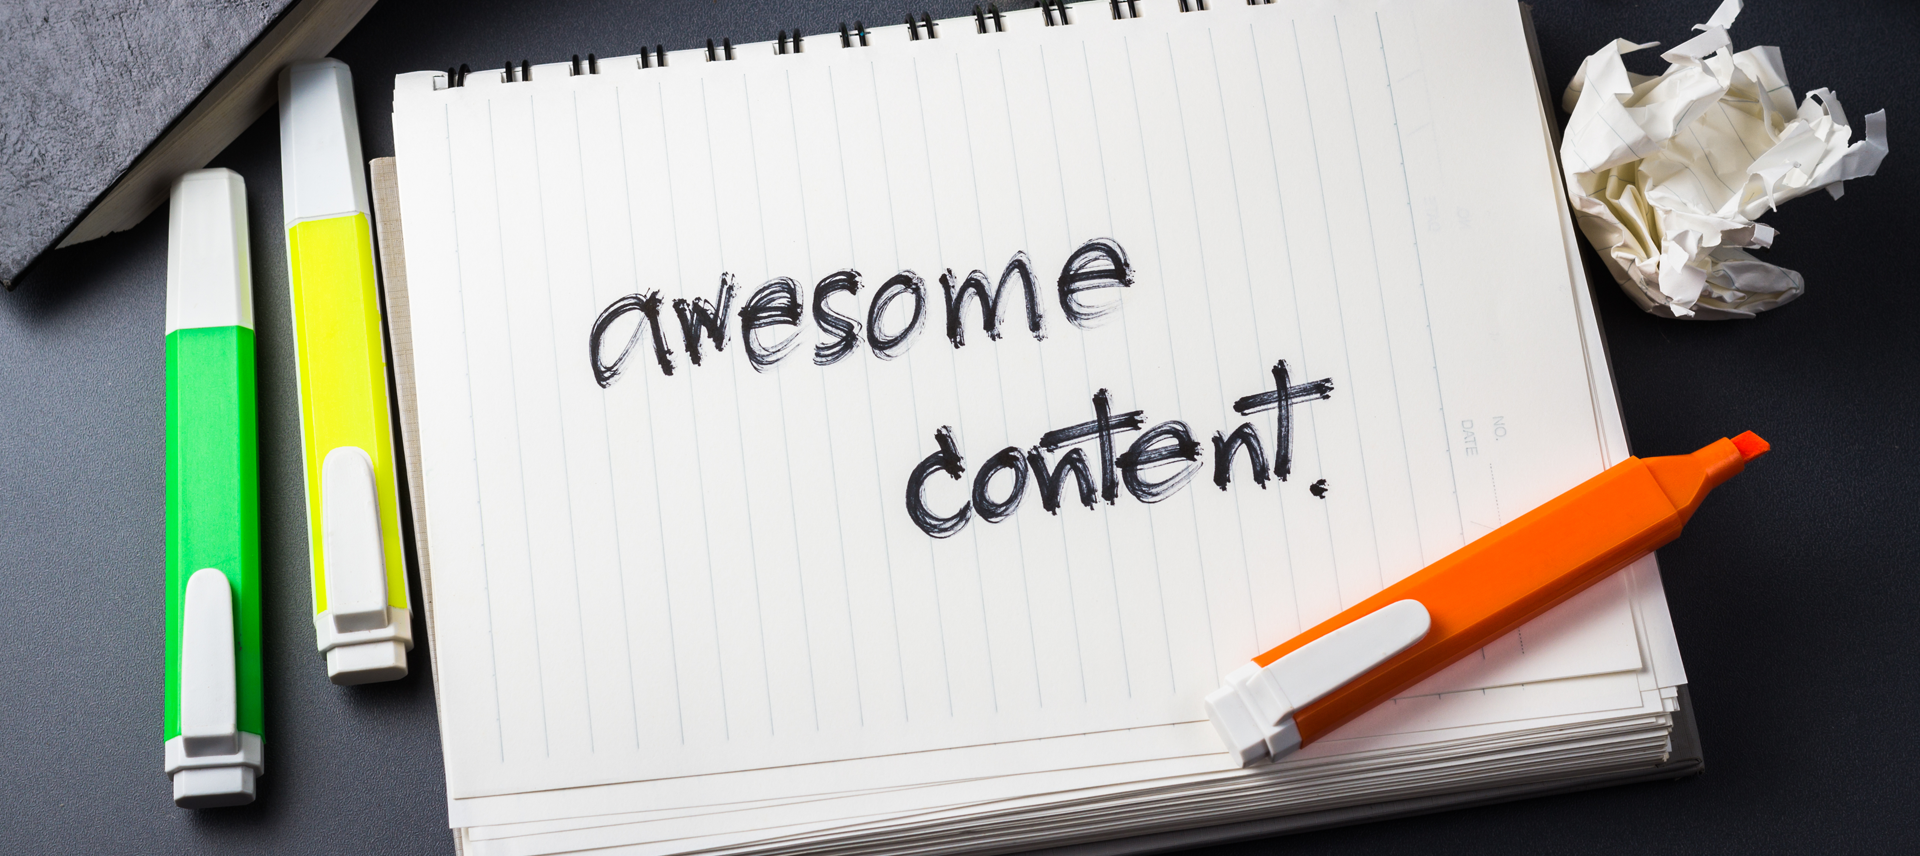 awesome
content.
NO.
DATE